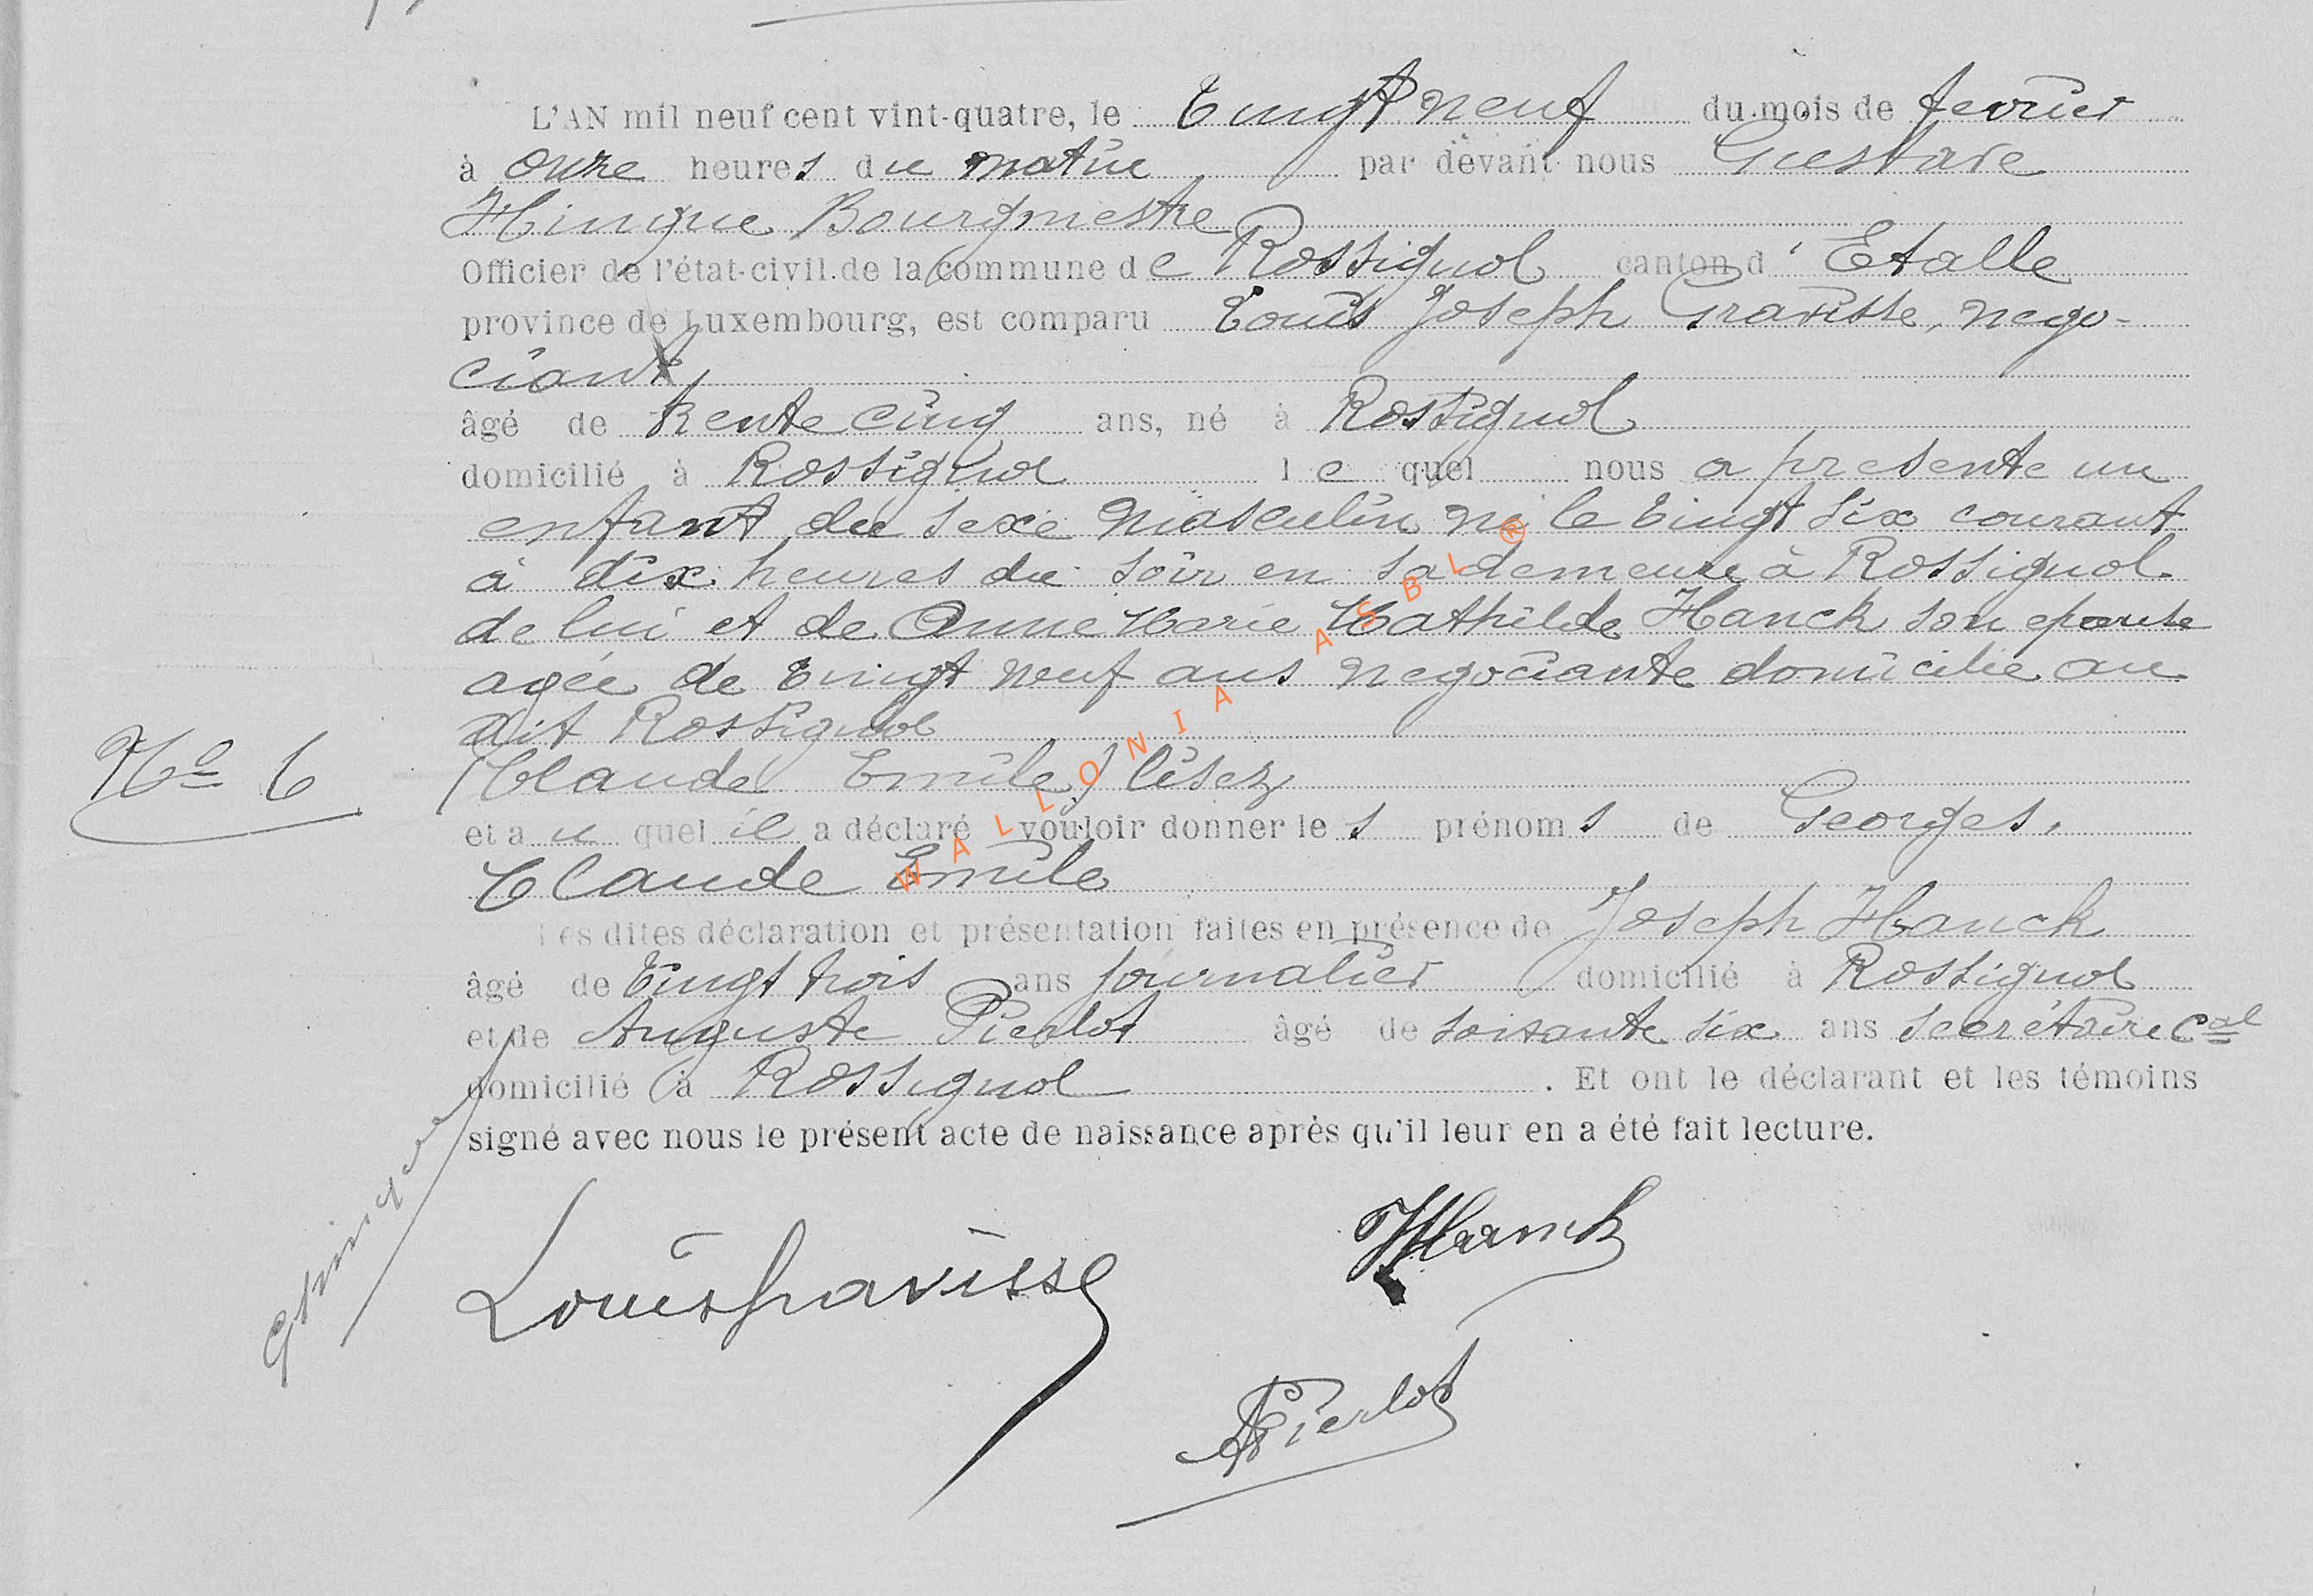 L'AN mil neuf cent vint-quatre, le Vingt neuf du mois de fevrier
à onze heures du matin par devant nous Gustave
Hinque Bourgmestre
Officier de l'état-civil de la commune de Rossignol canton d' Etalle
province de Luxembourg, est comparu Louis Joseph Gravisse, nego-
ciant
âgé de trente cinq ans, né à Rossignol
domicilié à Rossignol le quel nous a presente un
enfant du sexe masculin né le vingt six courant
à dix heures du soir en sa demeure à Rossignol
de lui et de Anne Marie Mathilde Hanck son epouse
agée de vingt neuf ans negociante domicilie au
dit Rossignol
N° 6
(Claude Emile) lisez
et au quel il a déclaré vouloir donner les prénoms de Georges,
Claude Emile
Les dites déclaration et présentation faites en présence de Joseph Hanck
âgé de Vingt trois ans journalier domicilié à Rossignol
et de Auguste Pierlot âgé de soixante six ans secrétaire cal
domicilié à Rossignol . Et ont le déclarant et les témoins
signé avec nous le présent acte de naissance après qu'il leur en a été fait lecture.
GHinque
Louis Gravisse
JHanck
APierlot
WALLONIA ASBL ®